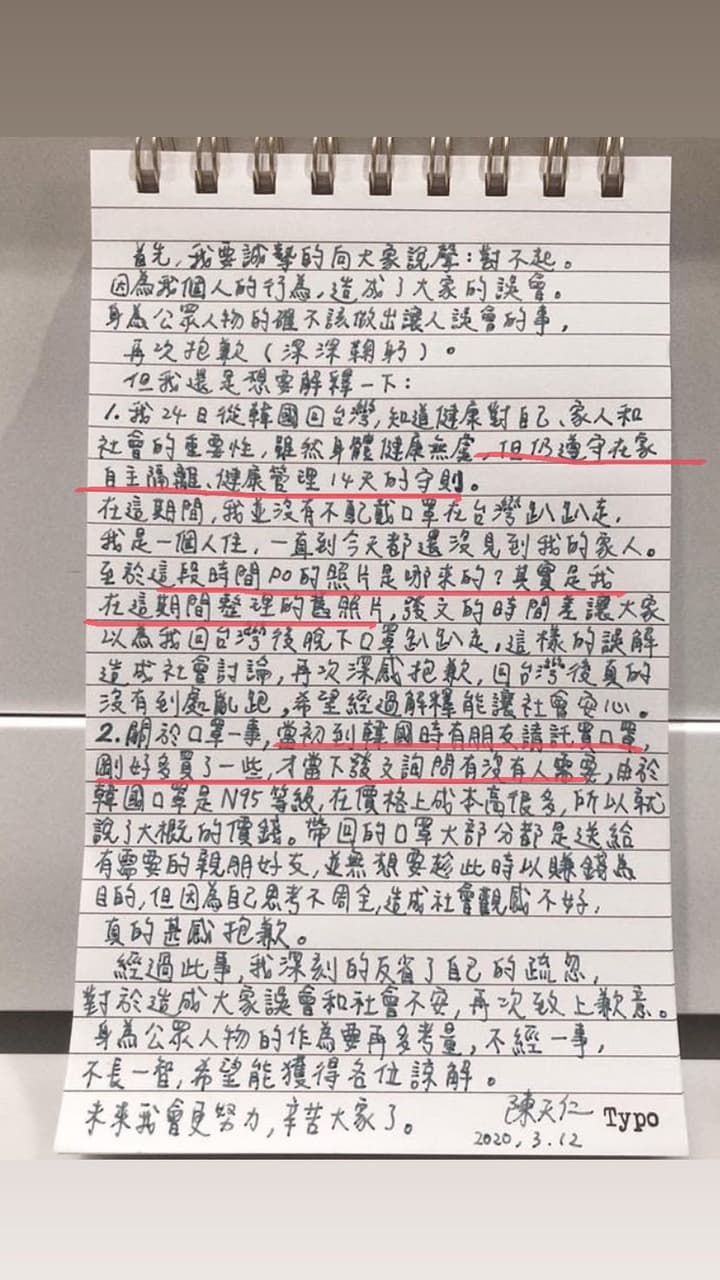 首先,我要誠摯的向大家說聲:對不起。
因為我個人的行為,造成了大家的誤會。
身為公眾人物的確不該做出讓人誤會的事,
再次抱歉(深深鞠躬)。
但我還是想要解釋一下:
1.我24日從韓國回台灣,知道健康對自己、家人和
社會的重要性,雖然身體健康無虞,但仍遵守在家
自主隔離、健康管理14天的守則。
在這期間,我並沒有不配戴口罩在台灣趴趴走,
我是一個人住,一直到今天都還沒見到我的家人。
至於這段時間PO的照片是哪來的?其實是我
在這期間整理的舊照片,發文的時間差讓大家
以為我回台灣後脫下口罩趴趴走,這樣的誤解
造成社會討論,再次深感抱歉,回台灣後真的
沒有到處亂跑,希望經過解釋能讓社會安心。
2.關於口罩一事,當初到韓國時有朋友請託買口罩,
剛好多買了一些,才當下發文詢問有沒有人需要,由於
韓國口罩是N95等級,在價格上成本高很多,所以就
說了大概的價錢。帶回的口罩大部分都是送給
有需要的親朋好友,並無想要趁此時以賺錢為
目的,但因為自己思考不周全,造成社會觀感不好,
真的甚感抱歉。
經過此事,我深刻的反省了自己的疏忽,
對於造成大家誤會和社會不安,再次致上歉意。
身為公眾人物的作為要再多考量,不經一事,
不長一智,希望能獲得各位諒解。
未來我會更努力,辛苦大家了。
陳天仁
2020,3.12
Typo